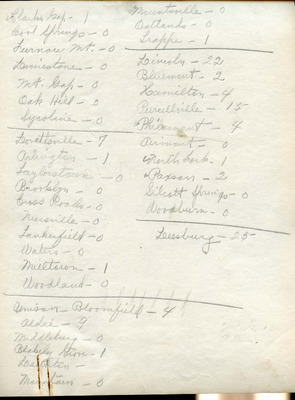 Clarks Gap - 1
Cool Springs - 0
Furnace Mt. - 0
Limestone - 0
Mt. Gap - 0
Oak Hill - 0
Sycoline - 0
Lovettsville - 7
Arlington - 1
Taylorstown - 0
Brooklyn - 0
Cross Roads - 0
Neersville - 0
Tankerfield - 0
Waters - 0
Milltown - 1
Woodland - 0
Unison - Bloomfield - 4
Aldie - 7
Middleburg - 0
Blakely Grove - 1
Leighton -
Mountain - 0
Mountsville - 0
Oatlands - 0
Trappe - 1
Lincoln - 22
Bluemont - 2
Hamilton - 4
Purcellville - 15
Philomont - 4
Airmont - 0
North Fork - 1
Paxson - 2
Silcott Springs - 0
Woodburn - 0
Leesburg - 25